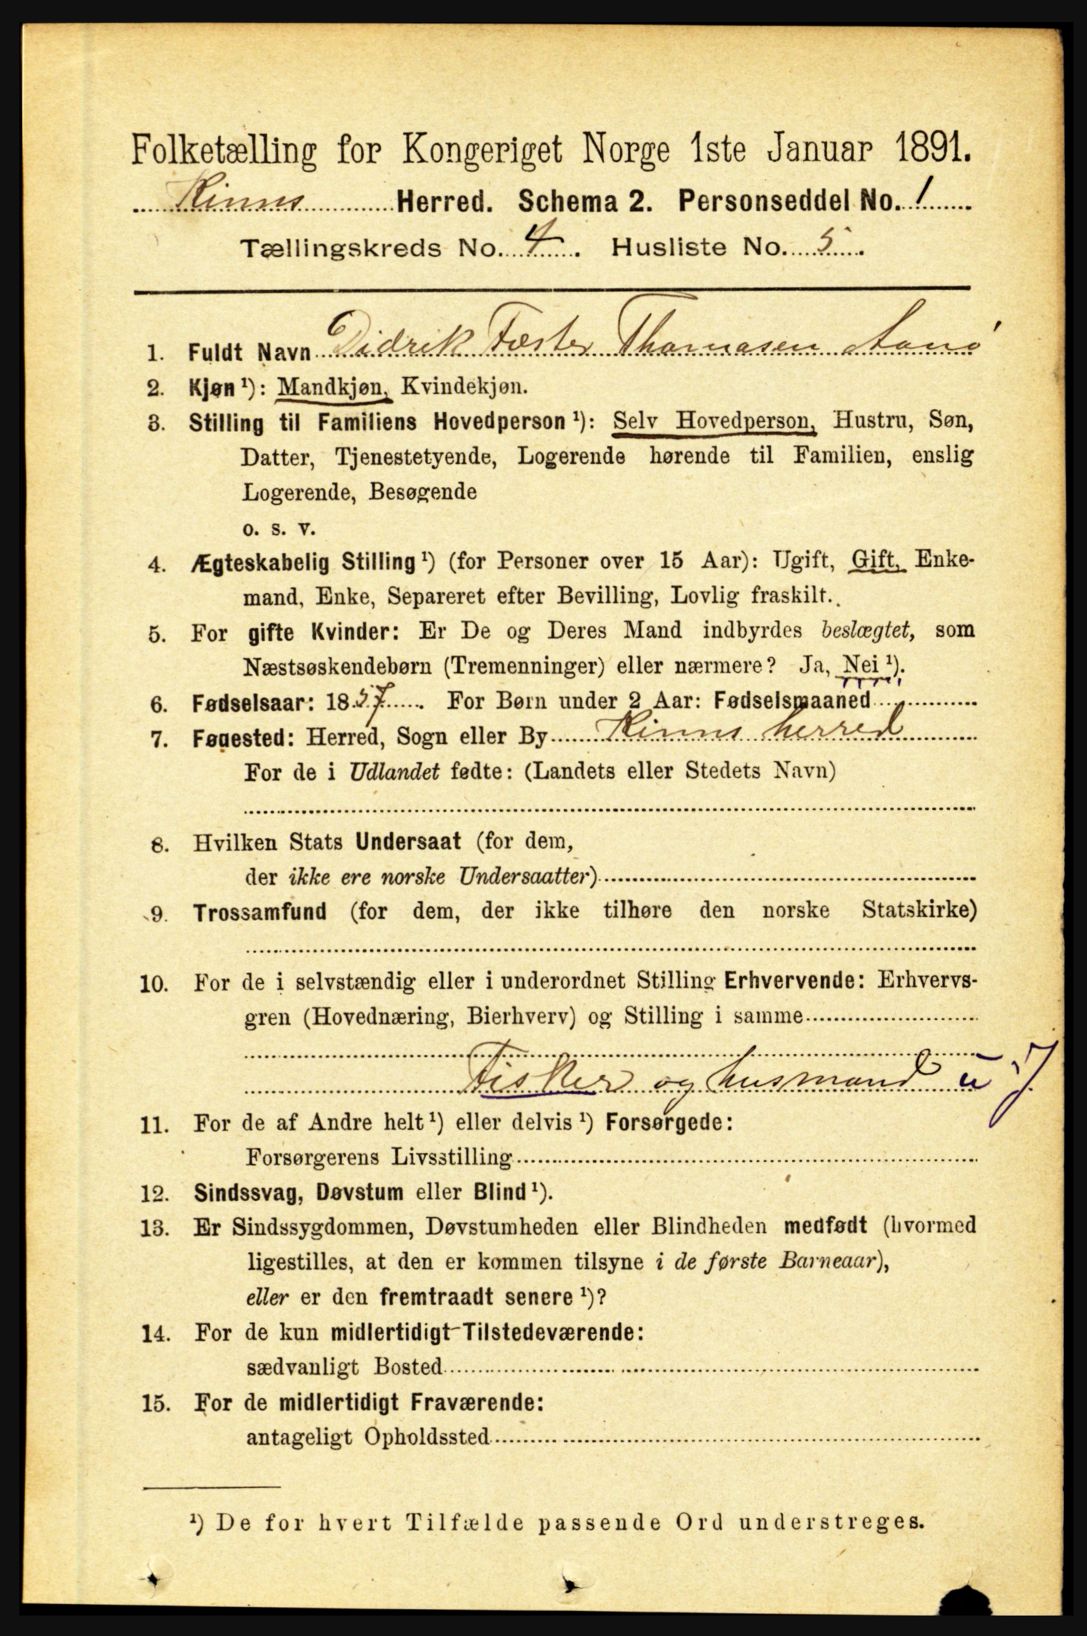 Folketælling for Kongeriget Norge 1ste Januar 1891.
Kinns Herred. Schema 2. Personseddel No. 1
Tællingskreds No. 4. Husliste No. 5.
1. Fuldt Navn Didrik Fester Thomasen Aanø
2. Kjøn ¹): Mandkjøn, Kvindekjøn.
3. Stilling til Familiens Hovedperson ¹): Selv Hovedperson, Hustru, Søn,
Datter, Tjenestetyende, Logerende hørende til Familien, enslig
Logerende, Besøgende
o. s. v.
4. Ægteskabelig Stilling ¹) (for Personer over 15 Aar): Ugift, Gift, Enke-
mand, Enke, Separeret efter Bevilling, Lovlig fraskilt.
5. For gifte Kvinder: Er De og Deres Mand indbyrdes beslægtet, som
Næstsøskendebørn (Tremenninger) eller nærmere? Ja, Nei ¹).
6. Fødselsaar: 1857. For Børn under 2 Aar: Fødselsmaaned
7. Føđested: Herred, Sogn eller By Kinns herred
For de i Udlandet fødte: (Landets eller Stedets Navn)
8. Hvilken Stats Undersaat (for dem,
der ikke ere norske Undersaatter)
9. Trossamfund (for dem, der ikke tilhøre den norske Statskirke)
10. For de i selvstændig eller i underordnet Stilling Erhvervende: Erhvervs-
gren (Hovednæring, Bierhverv) og Stilling i samme
Fisker og husmand u J.
11. For de af Andre helt ¹) eller delvis ¹) Forsørgede:
Forsørgerens Livsstilling
12. Sindssvag, Døvstum eller Blind ¹).
13. Er Sindssygdommen, Døvstumheden eller Blindheden medfødt (hvormed
ligestilles, at den er kommen tilsyne i de første Barneaar),
eller er den fremtraadt senere ¹)?
14. For de kun midlertidigt Tilstedeværende:
sædvanligt Bosted
15. For de midlertidigt Fraværende:
antageligt Opholdssted
¹) De for hvert Tilfælde passende Ord understreges.